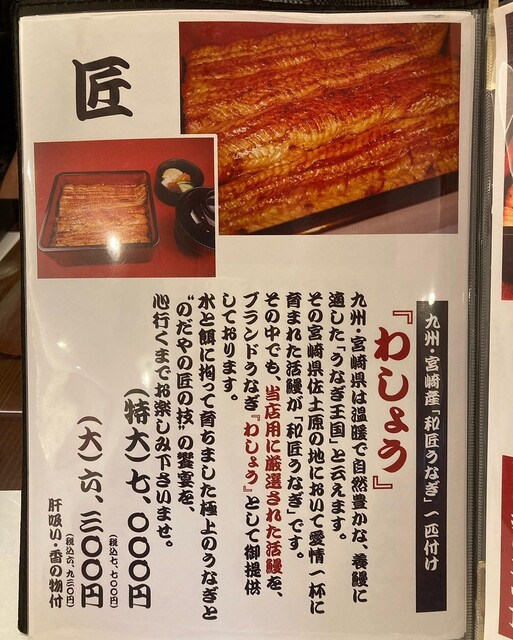 匠
九州・宮崎産「和匠うなぎ」一匹付け
『わしょう』
九州・宮崎県は温暖で自然豊かな、養鰻に
適した「うなぎ王国」と云えます。
その宮崎県佐土原の地において愛情一杯に
育まれた活鰻が「和匠うなぎ」です。
その中でも、当店用に厳選された活鰻を、
ブランドうなぎ『わしょう』として御提供
しております。
水と餌に拘って育ちました極上のうなぎと
“のだやの匠の技”の饗宴を、
心行くまでお楽しみ下さいませ。
（特大）七、〇〇〇円
（税込七、七〇〇円）
（大）六、三〇〇円
（税込六、九三〇円）
肝吸い・香の物付